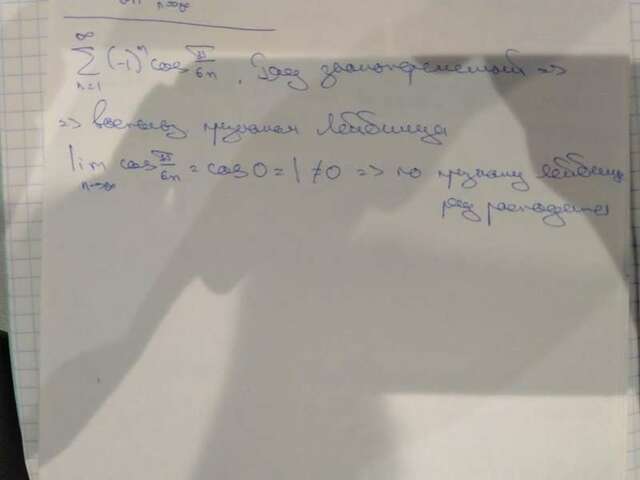 ∞
∑ (-1)ⁿ cos π/6n . Ряд знакопеременный =>
n=1
=> воспольз признаком Лейбница
lim cos π/6n = cos 0 = 1 ≠ 0 => по признаку Лейбница
n→∞
ряд расходится